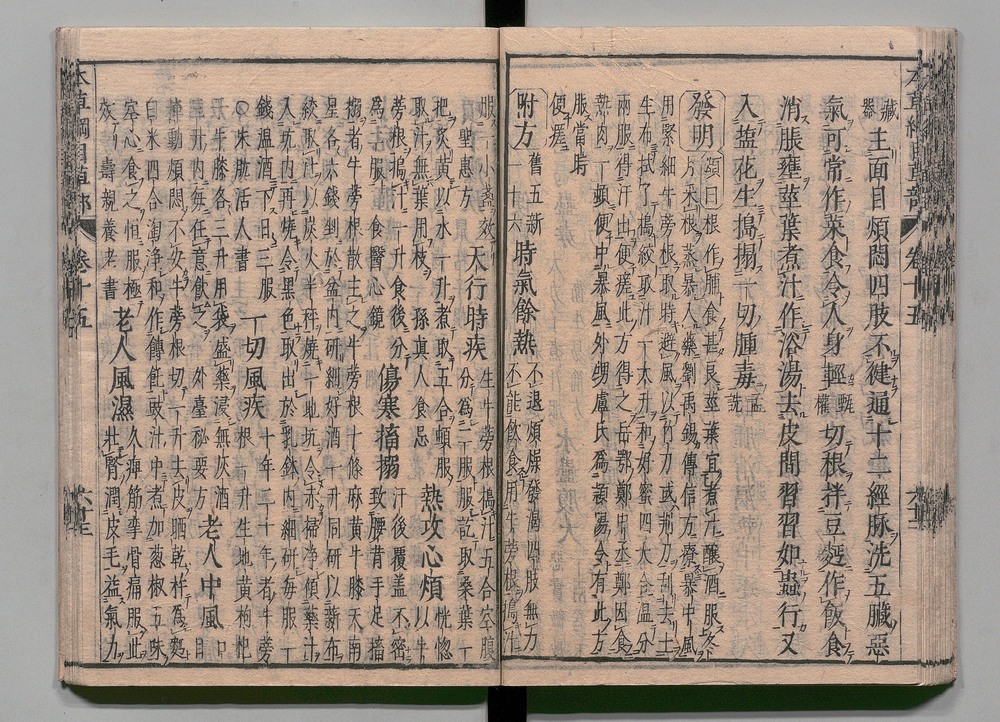 藏器
主面目煩悶四肢不健通十二經脉洗五臟惡
氣可常作菜食令人身輕甄權切根拌豆麪作飯食
消脹壅莖葉煮汁作浴湯去皮間習習如蟲行又
入鹽花生搗搨一切腫毒孟詵
發明頌曰根作脯食甚良莖葉宜煮汁釀酒服冬月采根蒸暴入藥劉禹錫傳信方療暴中風
用緊細牛蒡根取時避風以竹刀或荆刀刮去土
生布拭了搗絞取汁一大升和好蜜四大合温分
兩服得汗出便瘥此方得之岳鄂鄭中丞鄭因食
熱肉一頓便中暴風外甥盧氏爲潁陽令有此方
服當時便瘥
附方舊五新十六時氣餘熱不退煩燥發渴四肢無力不能飲食用牛蒡根搗汁
服一小盞效聖惠方
天行時疾生牛蒡根搗汁五合空腹分爲二服服訖取桑葉一
把炙黄以水一升煮取五合頓服取汁無葉用枝孫眞人食忌
熱攻心煩恍惚以牛
蒡根搗汁一升食後分爲三服食醫心鏡
傷寒搐搦汗後覆蓋不密致腰背手足搐
搦者牛蒡根散主之牛蒡根十條麻黄牛膝天南
星各六錢剉於盆内研細好酒一升同研以新布
絞取汁以炭火半秤燒一地坑令赤掃淨傾藥汁
入坑内再燒令黑色取出於乳鉢内細研每服一
錢温酒下日三服朱肱活人書
一切風疾十年二十年者牛蒡
根一升生地黄枸杞
子牛膝各三升用袋盛藥浸無灰酒
三升内每任意飲之外臺秘要方
老人中風口目
瞤動煩悶不安牛蒡根切一升去皮晒乾杵爲麪
白米四合淘淨和作餺飥豉汁中煮加葱椒五味
空心食之恒服極效壽親養老書
老人風濕久痺筋攣骨痛服此壯腎潤皮毛益氣力
本草綱目草部
卷十五
六十三